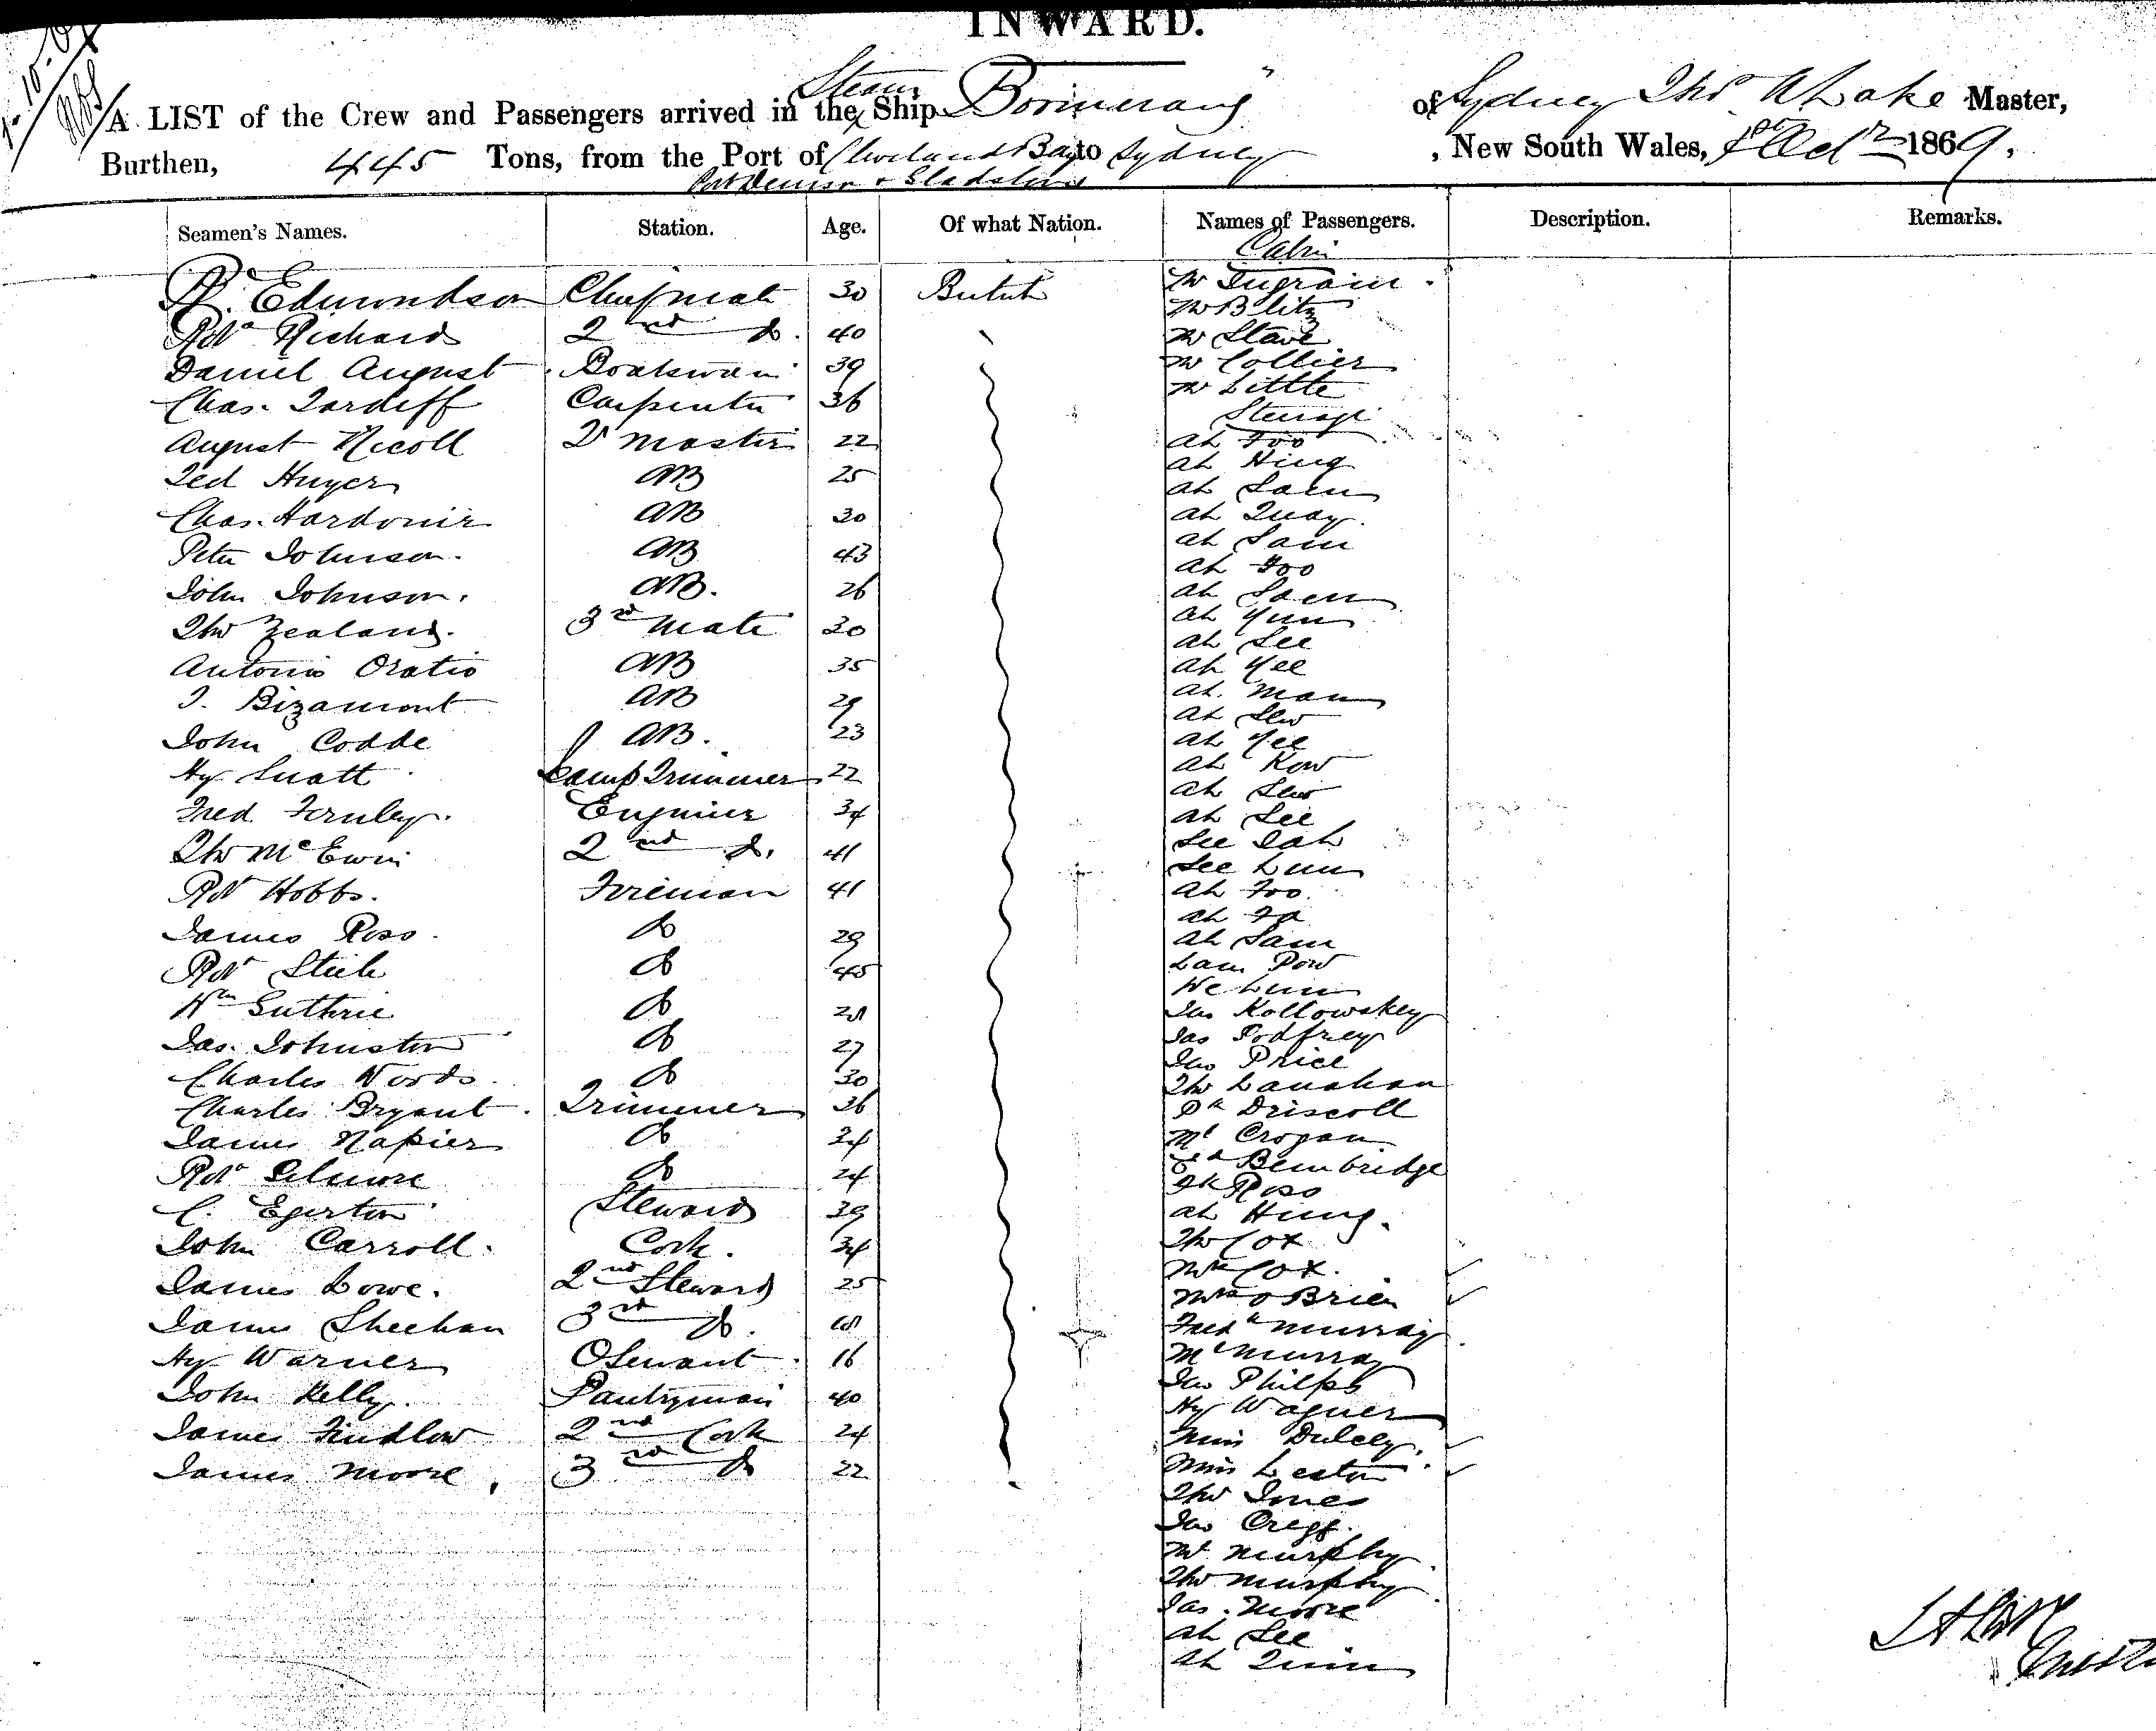 INWARD.
A LIST of the Crew and Passengers arrived in the Steam Ship "Boomerang" of Sydney Thos A Lake Master,
Burthen, 445 Tons, from the Port of Cleveland Bay to Sydney, New South Wales, 1st Octr 1869.
Port Denison & Gladstone
Seamen's Names. Station. Age. Of what Nation. Names of Passengers. Description. Remarks.
Cabin
Edmondson Chief mate 30 British Mr Ingram
Mr Blitz
Robt Richard 2nd Do. 40 Mr
Daniel August Boatswain 39 Mr Collier
Mr Little
Chas. Tardiff Carpenter 36 Steerage
August Nicoll Qr Master 22 Ah Foo
Ah Hing
AB 25 Ah Sam
Chas. AB 30 Ah Quay
Peter Johnson. AB 43 Ah Sam
Ah Foo
John Johnson. AB. 26 Ah Sam
Thos Zealand. 3rd Mate 30 Ah Yum
Ah See
Antonio Oratio AB 35 Ah Yee
J. Bizamont AB 29 Ah Man
Ah Sew
John Codde AB. 23 Ah Yee
Hy Lamp Trimmer 22 Ah Kow
Ah Sew
Fred Fernley. Engineer 34 Ah See
See Dah
Thos McEwin 2nd Do. 41 See Lum
Robt Hobbs. Fireman 41 Ah Foo
Ah Fa
James Ross. Do 29 Ah Sam
Robt Steele Do 45 Lam Pow
We Lum
Wm Guthrie Do Jno Kollowskey
Jas. Johnston Do 27 Jas Godfrey
Jno Price
Charles Woods. Do 30 Thos Lanahan
Charles Bryant. Trimmer 36 Pk Driscoll
James Napier Do 34 Ml Crogan
Robt Gilmore Do 24 Bembridge
Ross
C. Egerton Steward 39 Ah Hung.
John Carroll. Cook. 34 Thos Cox
Mrs Cox.
James Lowe. 2nd Steward 25 Mrs O Brien
James Sheehan 3rd Do. Fredk Murray
Hy Warner Servant 16 Murray
Jno Philps
John Kelly. Pantryman 40 Hy Wagner
James Findlow 2nd Cook 24 Miss Dulcey.
James Moore, 3rd Do 22 Miss Leston
Thos Jones
Jno Cregg.
Murphy
Thos Murphy
Jas. Moore
Ah See
Ah Quin
Master